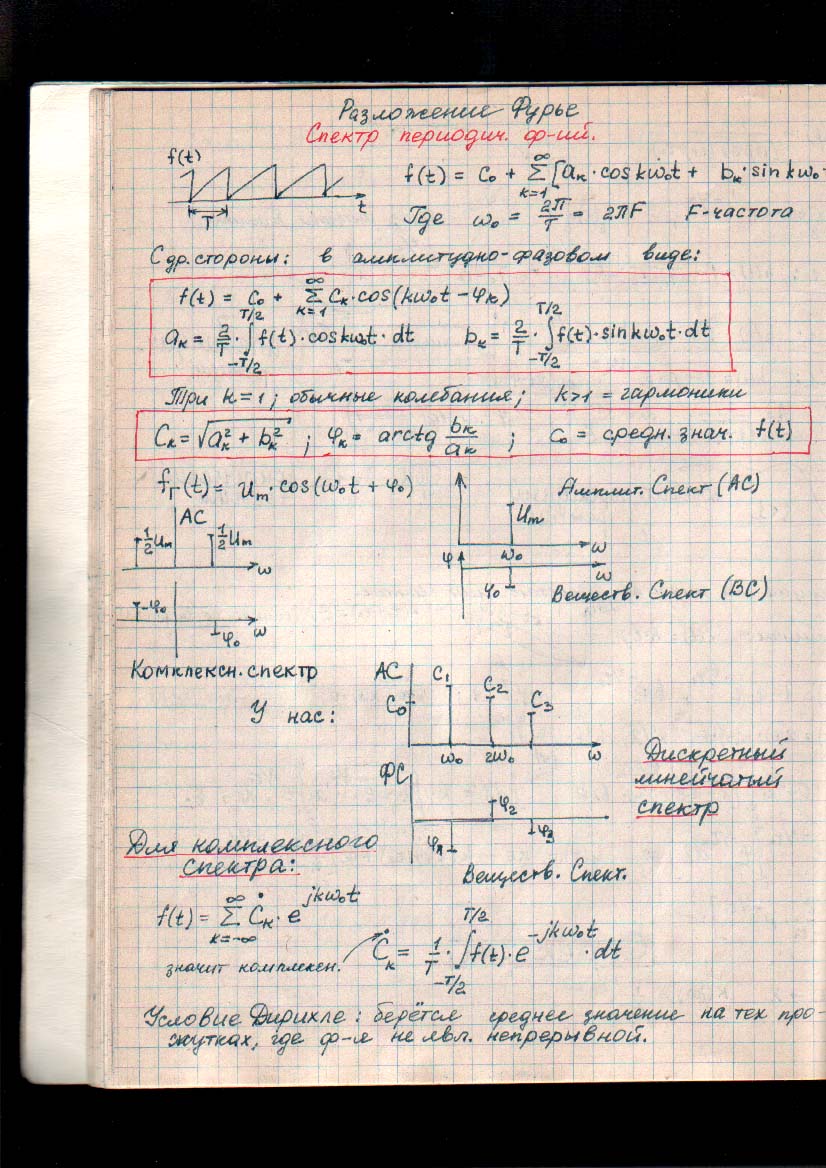 Разложение Фурье
Спектр периодич. ф-ий.
f(t)
t
T
f(t) = C₀ + ∑ₖ₌₁^∞ [aₖ · cos kω₀t + bₖ · sin kω₀
Где ω₀ = 2π/T = 2πF F-частота
С др. стороны: в амплитудно-фазовом виде:
f(t) = C₀ + ∑ₖ₌₁^∞ Cₖ · cos(kω₀t − φₖ)
aₖ = 2/T · ∫_{-T/2}^{T/2} f(t) · cos kω₀t · dt bₖ = 2/T · ∫_{-T/2}^{T/2} f(t) · sin kω₀t · dt
При k = 1; обычные колебания; k>1 = гармоники
Cₖ = √(aₖ² + bₖ²) ; φₖ = arctg bₖ/aₖ ; C₀ = средн. знач. f(t)
f_Г(t) = Uₘ · cos(ω₀t + φ₀)
AC
½Uₘ ½Uₘ
ω
-φ₀
φ₀ ω
Комплексн. спектр
Амплит. Спект (АС)
Uₘ
ω₀ ω
φ
ω
φ₀
Веществ. Спект (ВС)
У нас:
АС
C₀ C₁ C₂ C₃
ω₀ 2ω₀ ω
ФС
φ₁ φ₂ φ₃
Веществ. Спект.
Дискретный
линейчатый
спектр
Для комплексного
спектра:
f(t) = ∑ₖ₌₋∞^∞ Ċₖ · e^{jkω₀t}
значит комплексн.
Ċₖ = 1/T · ∫_{-T/2}^{T/2} f(t) · e^{-jkω₀t} · dt
Условие Дирихле: берётся среднее значение на тех про-
жутках, где ф-я не явл. непрерывной.